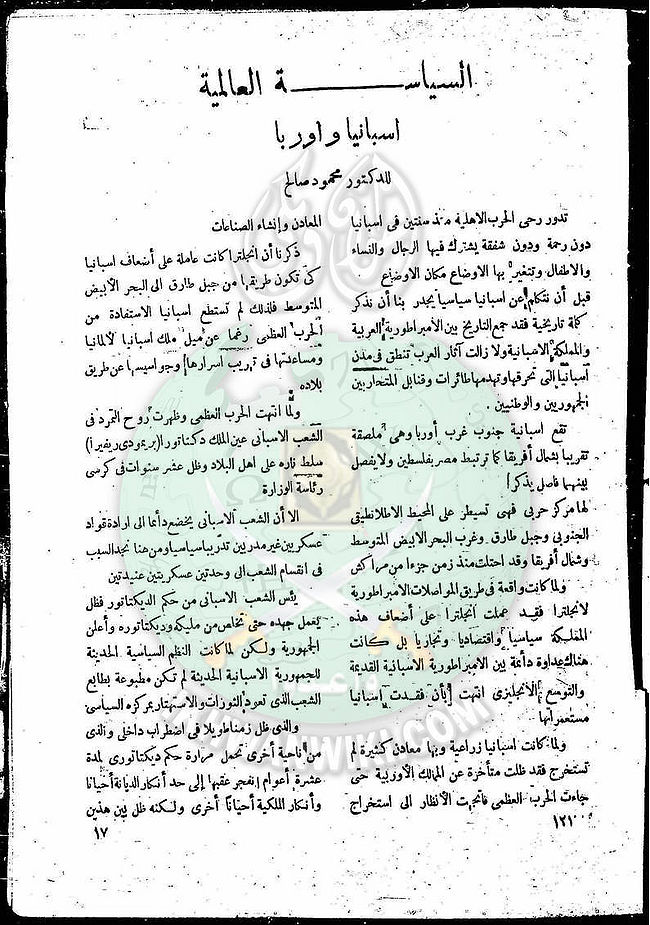 السياســـــــة العالمية
اسبانيا و اوربا
للدكتور محمود صالح
تدور رحى الحرب الاهلية منذ سنتين فى اسبانيا
دون رحمة ودون شفقة يشترك فيها الرجال والنساء
والاطفال وتتغير بها الاوضاع مكان الاوضاع
قبل أن نتكلم عن اسبانيا سياسيا يجدر بنا أن نذكر
كلمة تاريخية فقد جمع التاريخ بين الأمبراطورية العربية
والمملكة الاسبانية ولا زالت آثار العرب تنطق فى مدن
أسبانيا التى تحرقها وتهدمها طائرات وقنابل المتحاربين
الجمهوريين والوطنيين .
تقع اسبانية جنوب غرب أوربا وهى ملصقة
تقريبا بشمال أفريقا كما ترتبط مصر بفلسطين ولا يفصل
بينهما فاصل يذكر
لها مركز حربى فهى تسيطر على المحيط الاطلانطيقى
الجنوبى وجبل طارق وغرب البحر الابيض المتوسط
وشمال أفريقا وقد احتلت منذ زمن جزءا من مراكش
ولما كانت واقعة فى طريق المواصلات الامبراطورية
لانجلترا فقد عملت انجلترا على أضعاف هذه
المملكة سياسيا واقتصاديا وتجاريا بل كانت
هناك عداوة دائمة بين الامبراطورية الاسبانية القديمة
والتوسع الأنجليزى انتهت بأن فقدت اسبانيا
مستعمراتها
ولما كانت اسبانيا زراعية وبها معادن كثيرة لم
تستخرج فقد ظلت متأخرة عن الممالك الأوربية حتى
جاءت الحرب العظمى فاتجهت الأنظار الى استخراج
المعادن وإنشاء الصناعات
ذكرنا أن انجلترا كانت عاملة على أضعاف اسبانيا
كى تكون طريقها من جبل طارق الى البحر الأبيض
المتوسط فلذلك لم تستطع اسبانيا الاستفادة من
الحرب العظمى رغما عن ميل ملك اسبانيا لألمانيا
ومساعدتها فى تهريب أسرارها وجواسيسها عن طريق
بلاده
ولما انتهت الحرب العظمى وظهرت روح التمرد فى
الشعب الاسبانى عين الملك دكتاتورا (بريمودى ريفيرا)
سلط ناره على اهل البلاد وظل عشر سنوات فى كرسى
رئاسة الوزارة
الا أن الشعب الأسبانى يخضع دائما الى ارادة قواد
عسكريين غير مدربين تدريبا سياسيا ومن هنا نجد السبب
فى انقسام الشعب الى وحدتين عسكريتين عنيدتين
يئس الشعب الاسبانى من حكم الديكتاتور فظل
يعمل جهده حتى تخلص من مليكه وديكتاتوره وأعلن
الجمهورية ولكن لما كانت النظم السياسية الحديثة
للجمهورية الاسبانية الحديثة لم تكن مطبوعة بطابع
الشعب الذى تعود الثورات والاستهتار بمركزه السياسى
والذى ظل زمنا طويلا فى اضطراب داخلى والذى
من ناحية أخرى تحمل مرارة حكم ديكتاتورى لمدة
عشرة أعوام انفجر عقبها إلى حد أنكار الديانة أحيانا
وأنكار الملكية أحيانا أخرى ولكنه ظل بين هذين
١٧
IKHWANWIKI.COM